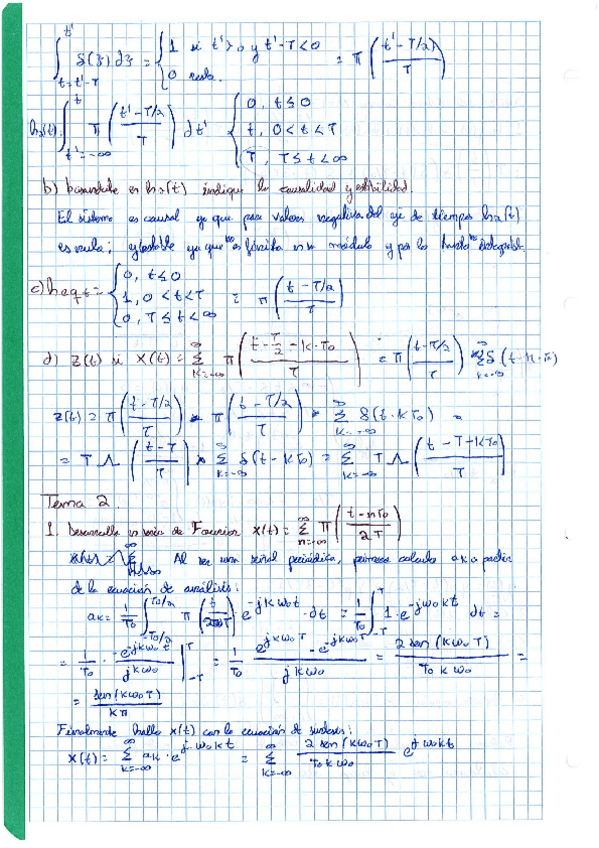 ∫_{t=t'-T}^{t'} δ(ξ)dξ = { 1 si t'>0 y t'-T<0 ; 0 resto. = π((t'-T/2)/T)
h₂(t) = ∫_{t'=-∞}^{t} π((t'-T/2)/T) dt' { 0, t≤0 ; t, 0<t<T ; T, T≤t<∞
b) basandote en h₂(t) indique la causalidad y estabilidad.
El sistema es causal ya que para valores negativos del eje de tiempos h₂(t)
es nula; y estable ya que es finita en su módulo y por lo tanto
c) heqt = { 0, t≤0 ; 1, 0<t<T ; 0, T≤t<∞ = π((t-T/2)/T)
d) z(t) si x(t) = Σ_{k=-∞}^{∞} π((t-T/2-k·T₀)/T) = π((t-T/2)/T) * Σ_{k=-∞}^{∞} δ(t-k·T₀)
z(t) = π((t-T/2)/T) * π((t-T/2)/T) * Σ_{k=-∞}^{∞} δ(t-kT₀) =
= T Λ((t-T)/T) * Σ_{k=-∞}^{∞} δ(t-kT₀) = Σ_{k=-∞}^{∞} T Λ((t-T+kT₀)/T)
Tema 2.
1. Desarrolla en serie de Fourier x(t) = Σ_{n=-∞}^{∞} π((t-nT₀)/2T)
Al ser una señal periódica, primero calculo ak a partir
de la ecuación de análisis:
ak = 1/T₀ ∫_{-T₀/2}^{T₀/2} π(t/2T) e^{-jkω₀t} · dt = 1/T₀ ∫_{-T}^{T} 1·e^{-jω₀kt} dt =
= 1/T₀ · -e^{-jkω₀t}/jkω₀ |_{-T}^{T} = 1/T₀ (e^{jkω₀T} - e^{-jkω₀T})/jkω₀ = 2 sen(kω₀T)/T₀kω₀ =
= sen(kω₀T)/kπ
Finalmente hallo x(t) con la ecuación de síntesis:
x(t) = Σ_{k=-∞}^{∞} ak · e^{jω₀kt} = Σ_{k=-∞}^{∞} 2 sen(kω₀T)/T₀kω₀ e^{jω₀kt}